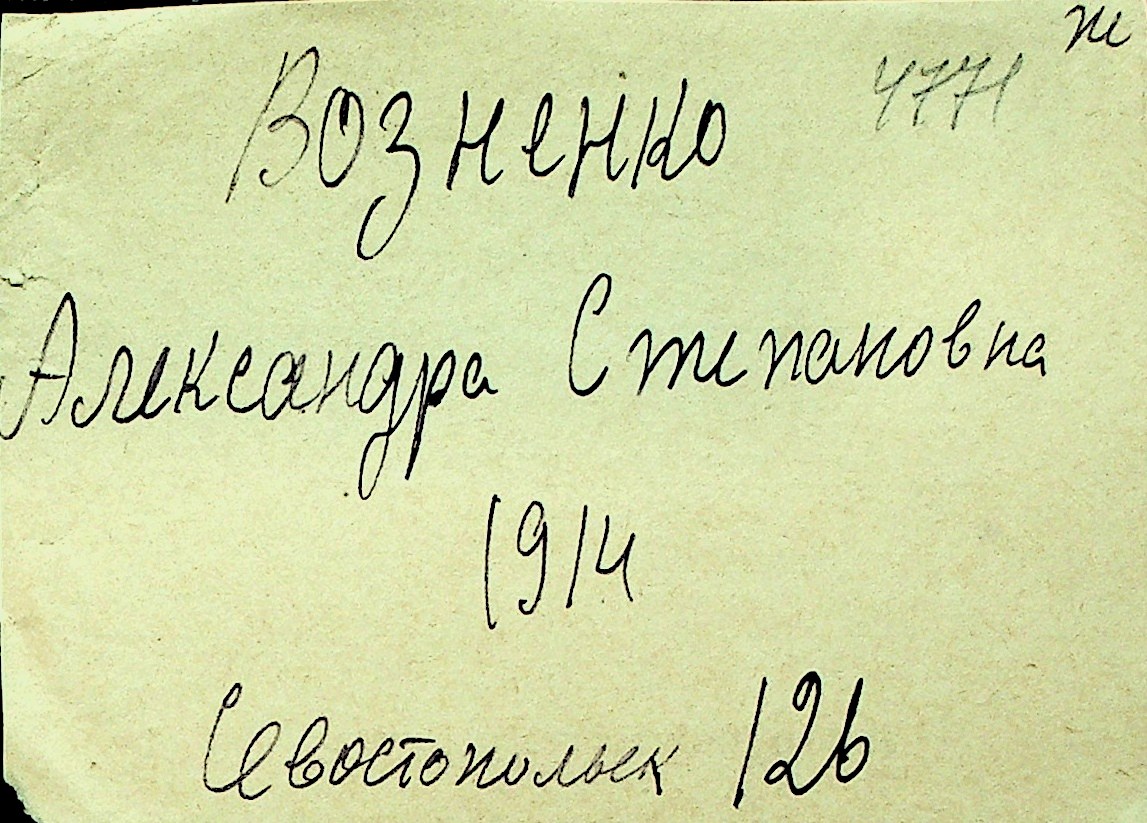 ж
Возненко 4771
Александра Степановна
1914
Севостопольск 126